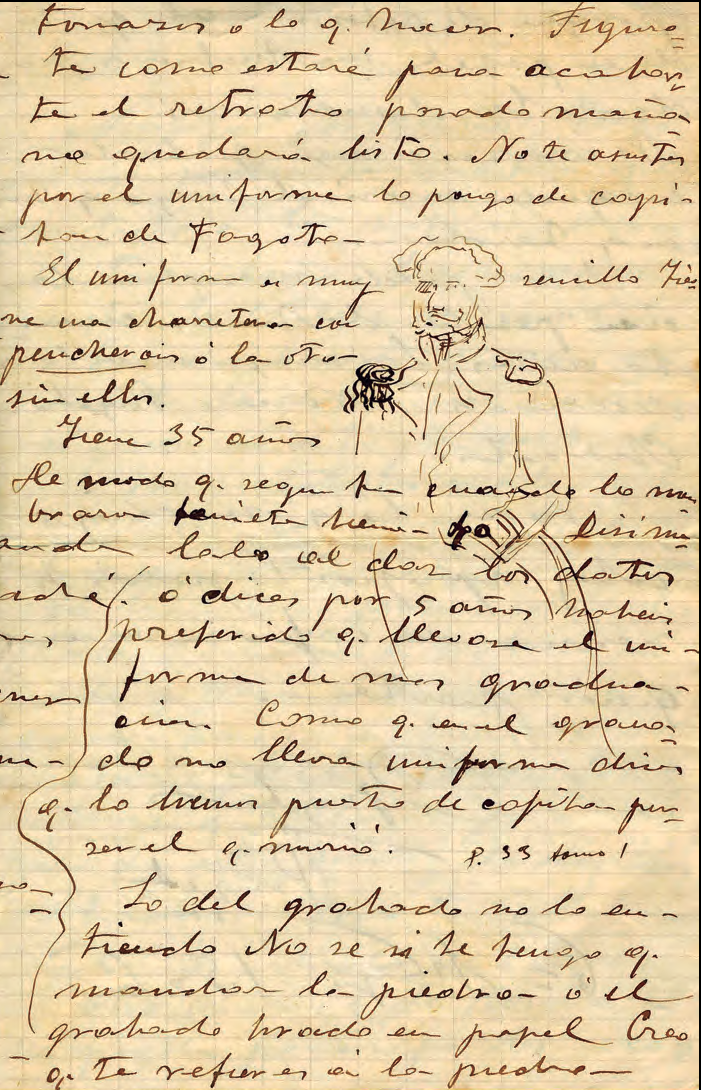 tomaros o lo q. hacer. Figura=
te como estaré para acabar
te el retrato pasado maña-
na quedará listo. No te asustes
por el uniforme lo pongo de capi-
tan de Fragata-
El uniforme es muy sencillo Tie=
ne una charretera con
pencherais ó la otra
sin ellos.
Tiene 35 años
De modo q. segun tu cuando lo nom
braron teniente tenia Disimu
lalo al dar los datos
ó dices por 5 años habeis
preferido q. llevase el uni-
forme de mas gradua-
cion. Como q. en el graba-
do no lleva uniforme dices
q. lo hemos puesto de capitan por
ser el q. murió. P. 33 tomo 1
Lo del grabado no lo en-
tiendo No se si te tengo q.
mandar la piedra ó el
grabado tirado en papel Creo
q. te refieres á la piedra-